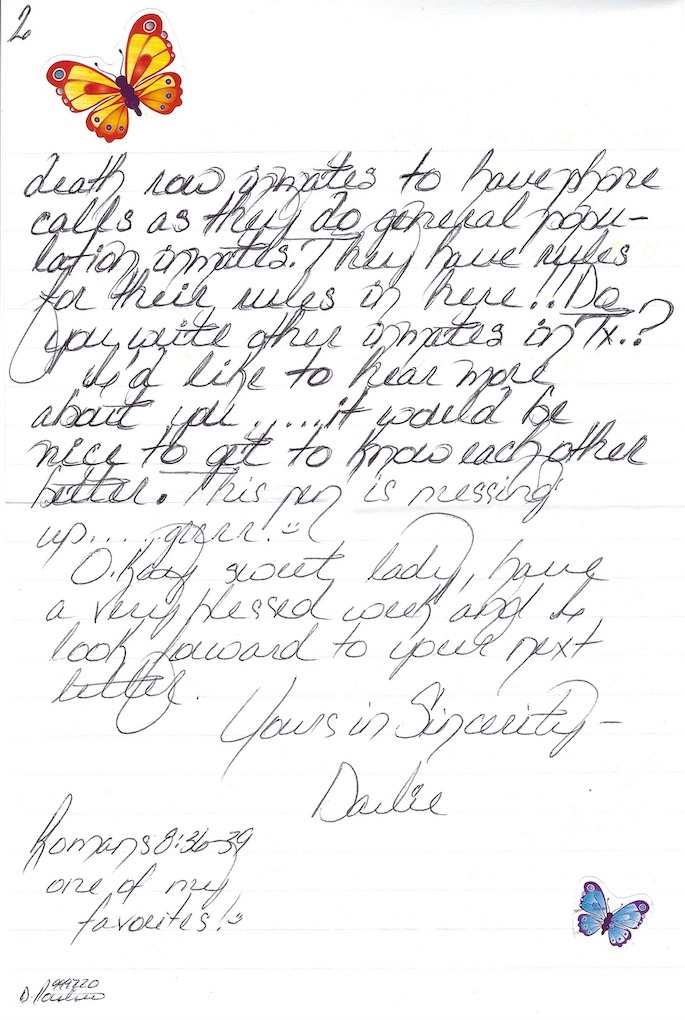 2
death row inmates to have phone
calls as they do general popu-
lation inmates. They have rules
for their rules in here!! Do
you write other inmates in Tx.?
I'd like to hear more
about you.....it would be
nice to get to know each other
better. This pen is messing
up.....grrrr!
O.Kay sweet lady, have
a very blessed week and I
look forward to your next
letter.
Yours in Sincerity-
Darlie
Romans 8:36-39
one of my
favorites!
999220
D.